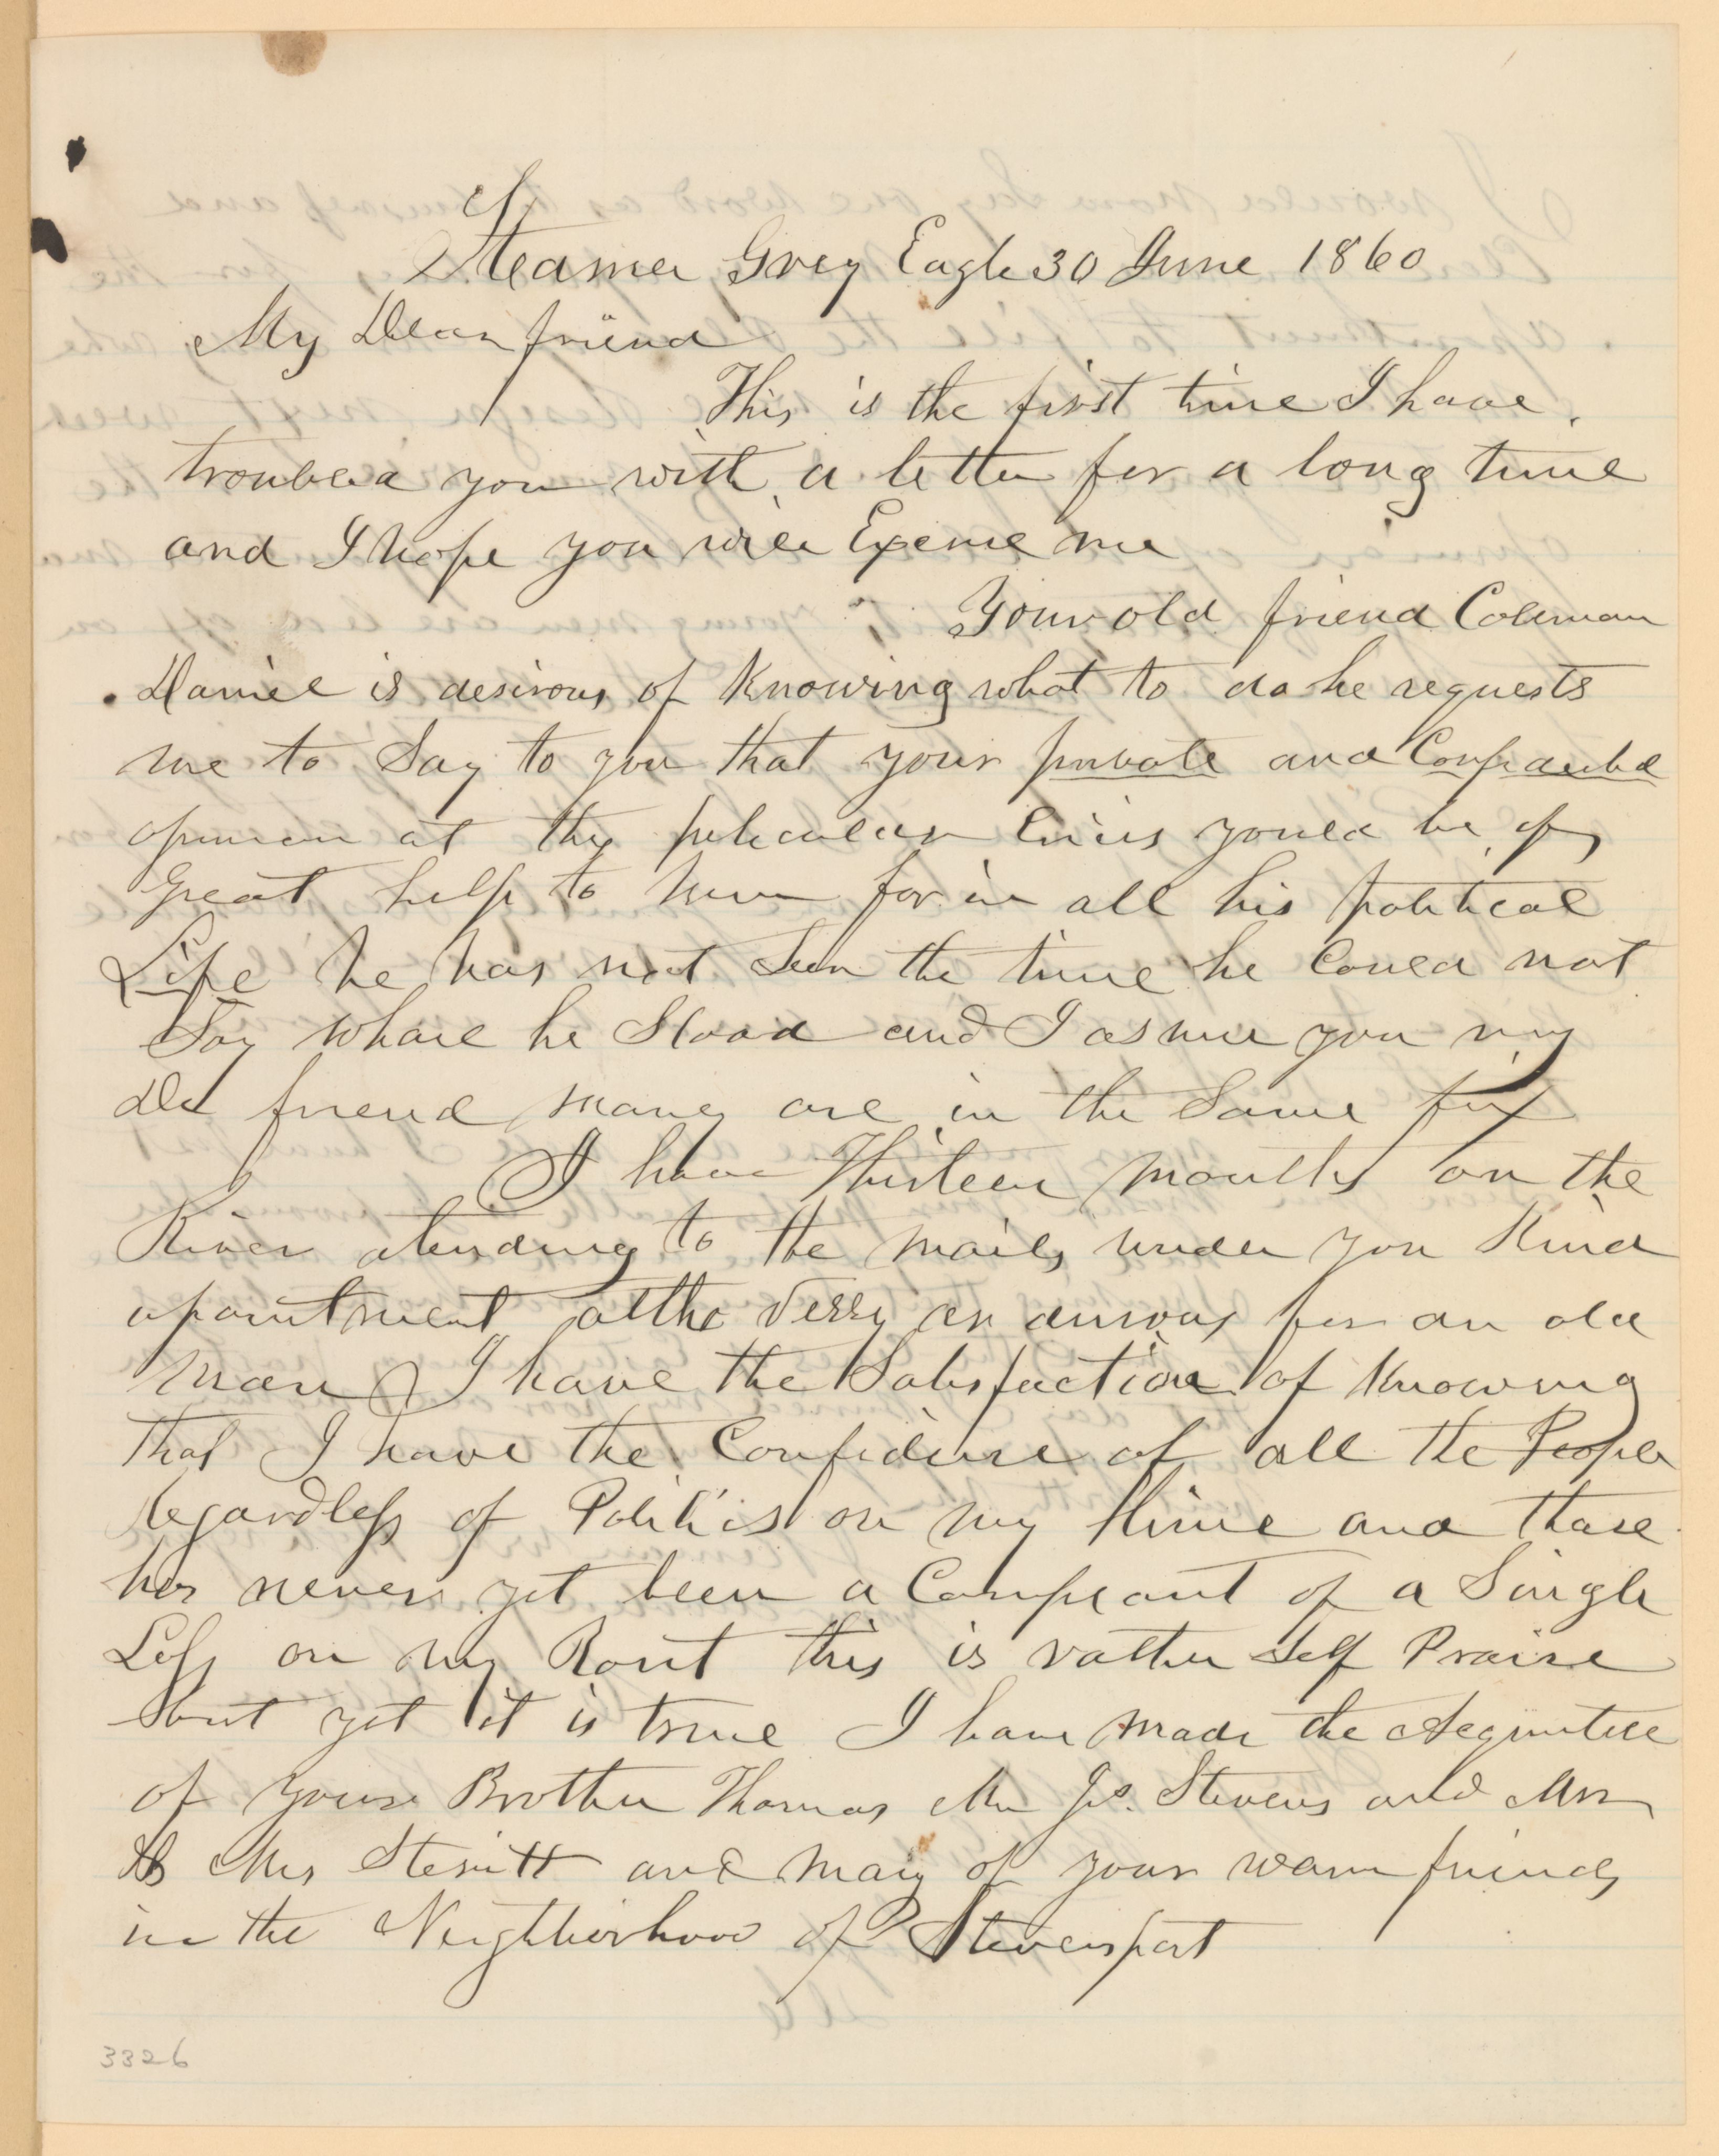 Steamer Grey Eagle 30 June 1860
My Dear friend
This is the first time I have
troubled you with a letter for a long time
and I hope you will Excuse me
Your old friend Coleman
Daniel is desirous of Knowing what to do he requests
me to Say to you that your private and
opinion at this Crisis would be of
Great help to him for in all his political
Life he has not Seen the time he Could not
Say whare he Stood and I asure you my
De friend many are in the Same fix
I have Thirteen months on the
River atending to the mails under you Kind
apointment altho Verry for an old
man I have the Satisfaction of Knowing
that I have the Confidence of all the People
Regardless of Politics on my and thare
has never yet been a Complant of a Single
Loss on my Rout this is rather Self Praise
but yet it is true I have made the
of youre Brother Thomas Mr Js. Stevens and
Mrs and many of your warm friends
in the Neighborhood of Stevensport
3326